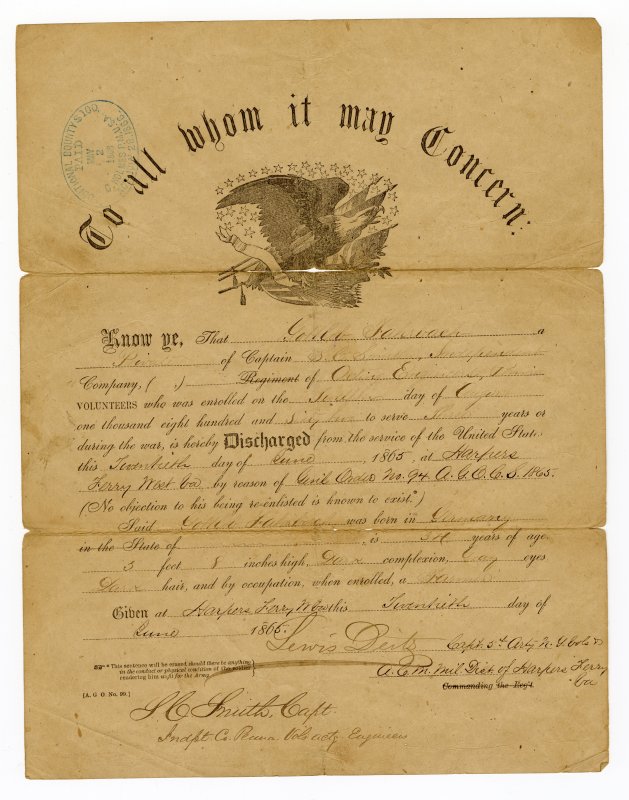 NATIONAL BOUNTY $100.
PAID
MAY
2
To all whom it may Concern:
Know ye, That John a
of Captain Independent
Company, ( ,) Regiment of
VOLUNTEERS who was enrolled on the day of
one thousand eight hundred and to serve years or
during the war, is hereby Discharged from the service of the United States
this Twentieth day of June, 1865, at Harpers
Ferry West Va by reason of Genl Order No. 94 A.G.O. C.S. 1865.
(No objection to his being re-enlisted is known to exist.*)
Said John was born in Germany
in the State of , is years of age,
5 feet 8 inches high, Dark complexion, Gray eyes
Dark hair, and by occupation, when enrolled, a
Given at Harpers Ferry W Va this Twentieth day of
June 1865.
Lewis Capt. 5th Arty N.Y. Vols
A.C.M. Mil. Dist. of Harpers Ferry
Va
Commanding the Reg't.
* This sentence will be erased should there be anything
in the conduct or physical condition of the soldier
rendering him unfit for the Army.
[A. G. O. No. 99.]
S C Smith, Capt
Indpt Co. Penna. Vols actg Engineers